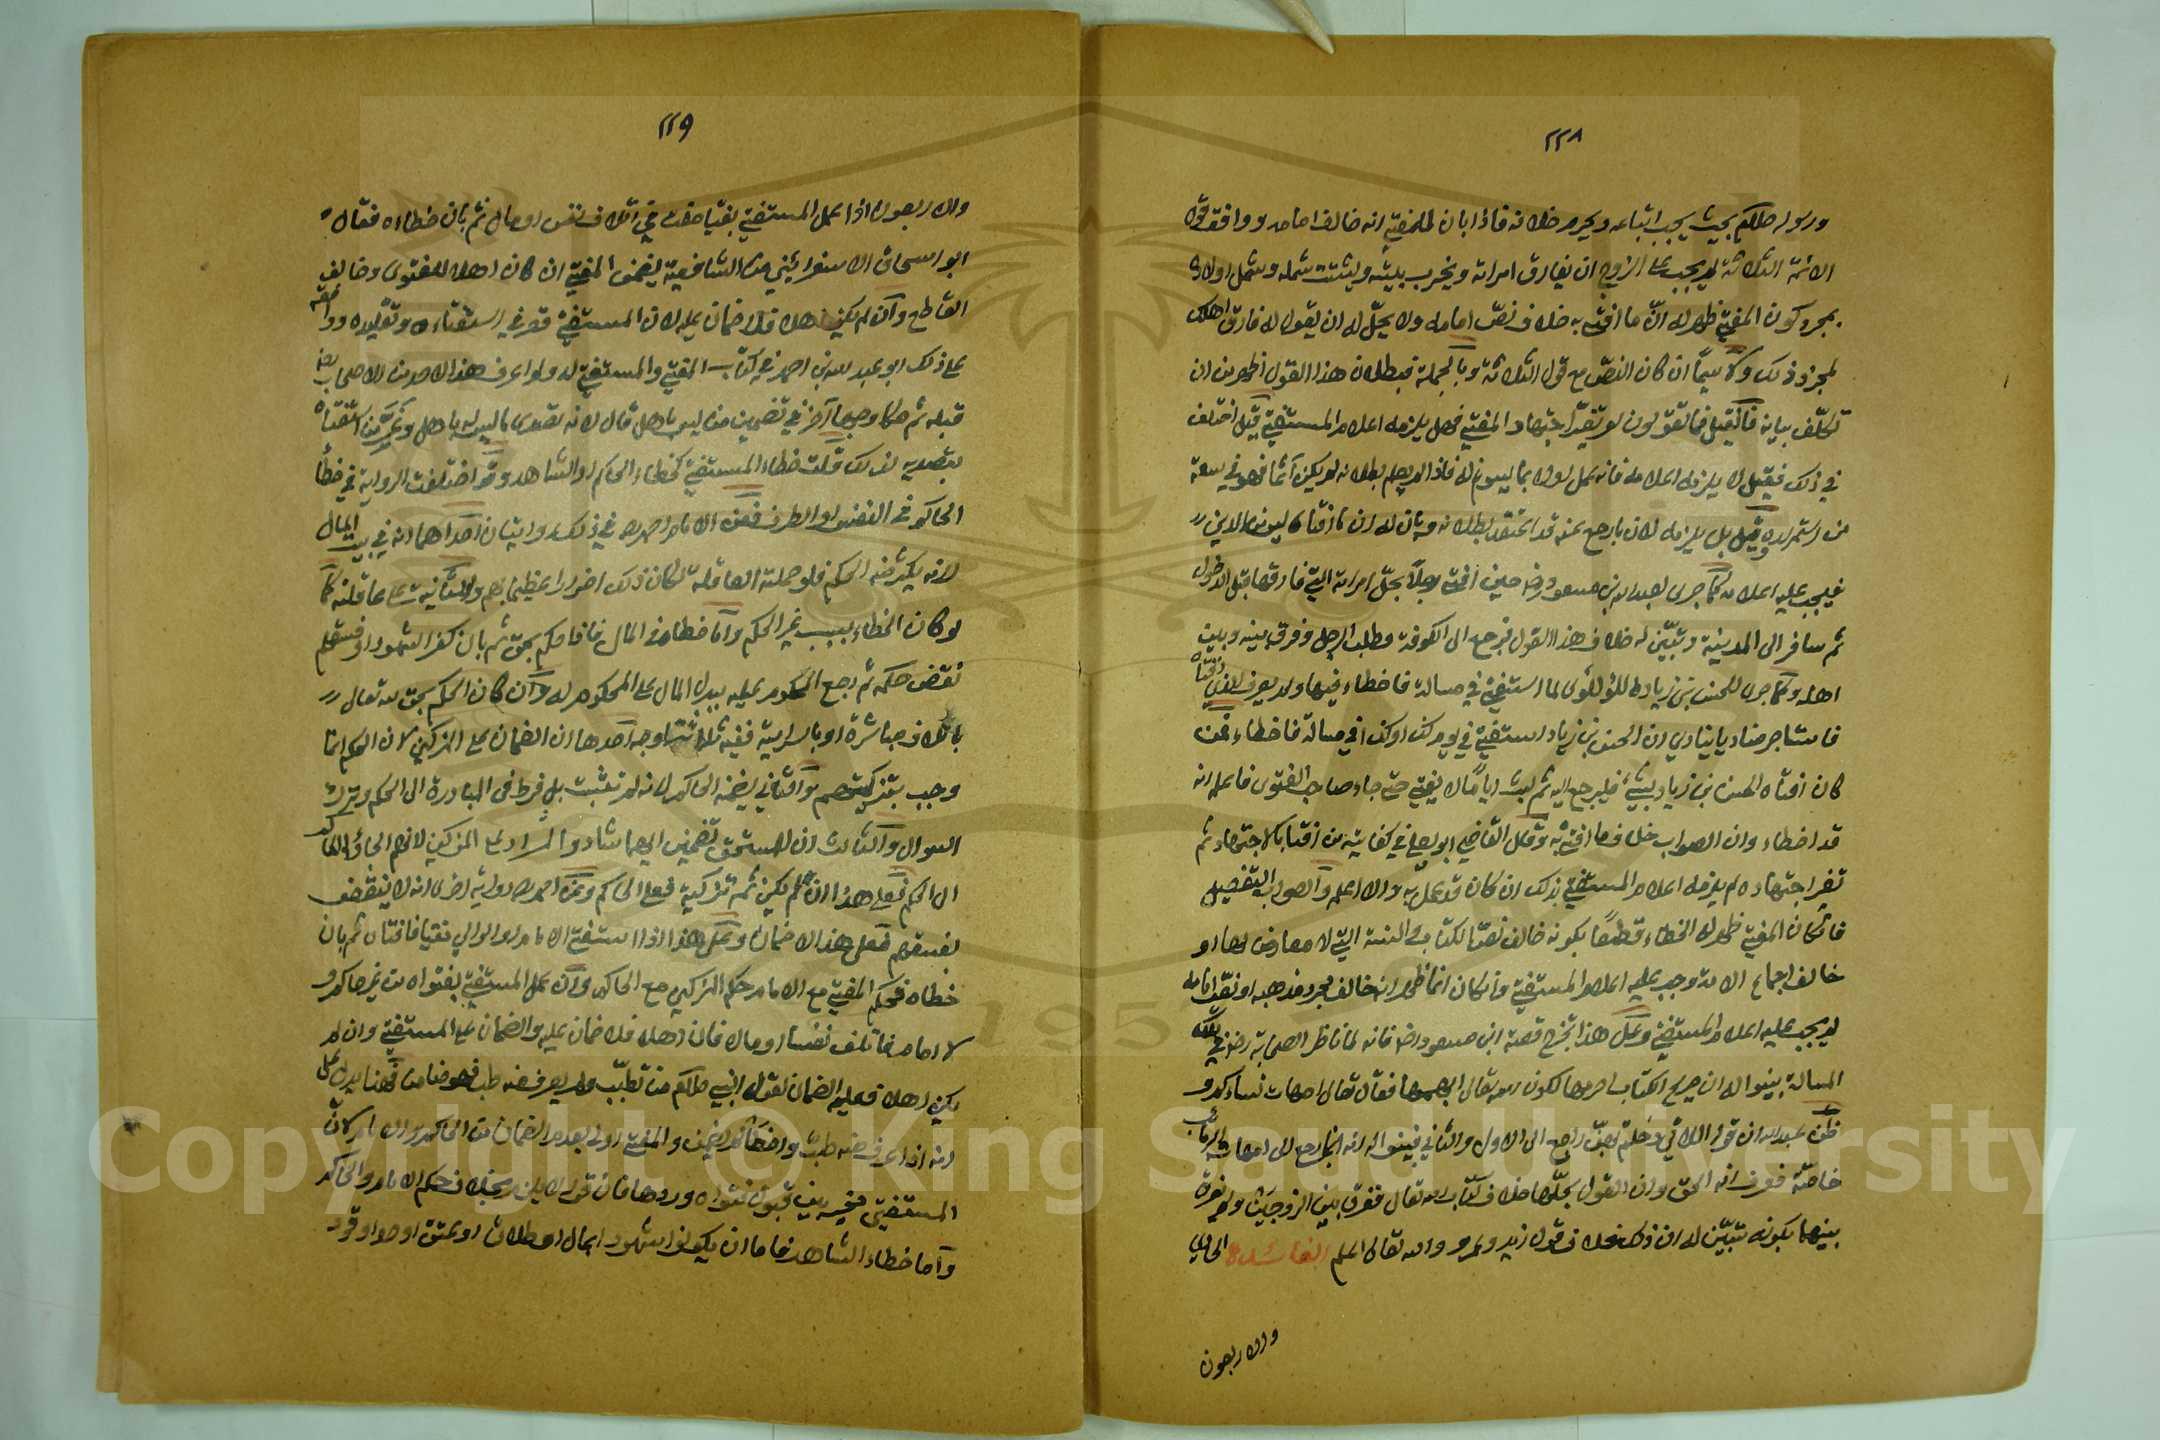 ٢٢٨
ورسوله صلعم بحيث يجب اتباعه ويحرم خلافه فاذا بان للمفتي انه خالف امامه ووافق قول
الائمة الثلاثة لم يجب على الزوج ان يفارق امراته ويخرب بيته ويشتت شمله وشمل اولاده
بمجرد كون المفتي ظهر له انّ ما افتى به خلاف نصّ امامه ولا يحلّ له ان يقول له فارق اهلك
لمجرد ذلك ولا سيّما ان كان النصّ مع قول الثلاثة وبالجملة فبطلان هذا القول اظهر من ان
تكلّف بيانه فان قيل فما تقولون لو تغيّر اجتهاد المفتي فهل يلزمه اعلام المستفتي قيل اختلف
في ذلك فقيل لا يلزمه اعلامه فانه عمل اولا بما يسوغ له فاذا لم يعلم بطلانه لم يكن آثما فهو في سعة
من استمراره وقيل بل يلزمه لان ما رجع عنه قد اعتقد بطلانه وبان له ان ما افتاه ليس من الدين
فيجب عليه اعلامه كما جرى لعبد الله بن مسعود رضه حين افتى رجلا بحلّ امراته التي فارقها قبل الدخول
ثم سافر الى المدينة وتبيّن له خلاف هذا القول فرجع الى الكوفة وطلب الرجل وفرق بينه وبين
اهله وكما جرى للحسن بن زياد اللؤلؤى لما استفتي في مسالة فاخطاء فيها ولم يعرف الذي افتاه
فاستاجر مناديا ينادي ان الحسن بن زياد استفتي في يوم كذا وكذا في مسالة فاخطاء فمن
كان افتاه الحسن بن زياد بشيء فليرجع اليه ثم لبث اياما لا يفتي حتى جاء صاحب الفتوى فاعلمه انه
قد اخطاء وان الصواب خلاف ما افتى به وقال القاضي ابو يعلى في كفايته من افتا بالاجتهاد ثم
تغير اجتهاده لم يلزمه اعلام المستفتي بذلك ان كان قد عمل به والا اعلمه والصواب التفصيل
فان كان المفتي ظهر له الخطاء قطعا بكونه خالف نصّ الكتاب والسنة التي لا معارض لها او
خالف اجماع الامة وجب عليه اعلام المستفتي وان كان انما ظهر انه خالف مجرد مذهبه او نصّ امامه
لم يجب عليه اعلام المستفتي وعلى هذا تخرج قصة ابن مسعود رضه فانه لما ناظر الصحابة رضه في تلك
المسالة بينوا له ان صريح الكتاب يحرمها لكون الله تعالى ابهمها فقال تعالى امهات نساءكم و
ظنّ عبد الله ان قوله اللاتي دخلتم بهنّ راجع الى الاول والثاني فبينوا له انه انما يرجع الى امهات الربائب
خاصّة فعرف انه الحق وان القول بحلّها خلاف كتاب الله تعالى ففرق بين الزوجين ولم يفرق
بينهما بكونه تبيّن له ان ذلك خلاف قول زيد وعمرو والله تعالى اعلم الفائدة الحادي
والاربعون
٢٢٩
والاربعون اذا عمل المستفتي بفتيا مفت في اتلاف نفس او مال ثم بان خطاءه فقال
ابو اسحاق الاسفرائيني من الشافعية يضمن المفتي ان كان اهلا للفتوى وخالف
القاطع وان لم يكن اهلا فلا ضمان عليه لان المستفتي قصر في استفتاءه وتقليده ووافقه
على ذلك ابو عبد الله بن احمد في كتاب المفتي والمستفتي له ولم اعرف هذا لاحد من الاصحاب
قبله ثم حكا وجها آخر في تضمين من ليس باهل قال لانه تصدى لما ليس له باهل وغرّ من استفتاه
بتصديه لذلك قلت خطاء المستفتي كخطاء الحاكم والشاهد وقد اختلفت الرواية في خطأ
الحاكم في النفس او الطرف فعن الامام احمد في ذلك روايتان احداهما انه في بيت المال
لانه يكثر منه الحكم فلو حملته العاقلة لكان ذلك اضرارا عظيما بهم والثانية على عاقلته كما
لو كان الخطاء بسبب غير الحكم وأمّا خطاه في المال فاذا حكم بحق ثم بان كفر الشهود او فسقهم
نقض حكمه ثم رجع المحكوم عليه ببدل المال على المحكوم له وان كان الحكم بحق لله تعالى
باتلاف مباشرة او بالسراية ففيه ثلاثة اوجه احدها ان الضمان على المزكين لان الحكم انما
وجب بتزكيتهم والثاني يضمنه الحاكم لانه لم يتثبت بل فرط في المبادرة الى الحكم وترك
السوال والثالث ان للمستحق تضمين ايهما شاء والقرار على المزكين لانهم الجاؤا الحاكم
الى الحكم فعلى هذا ان لم يكن ثمه تزكية فعلى الحاكم وعن احمد رواية اخرى انه لا ينقض
بفسقهم فعلى هذا لا ضمان وعلى هذا اذا استفتى الامام او الوالي مفتيا فافتاه ثم بان
خطاه فحكم المفتي مع الامام حكم المزكين مع الحاكم وان عمل المستفتي بفتواه من غير حاكم و
لا امام فاتلف نفسا او مالا فان كان اهلا فلا ضمان عليه والضمان على المستفتي وان لم
يكن اهلا فعليه الضمان لقوله النبي صلعم من تطبّب ولم يعرف منه طب فهو ضامن فهذا يدل على
انه اذا عرف منه طبّ واخطأ لم يضمن والمفتي اولى بعدم الضمان من الحاكم والامام لانّ
المستفتي مخير بين قبول فتواه وردها فان قوله لا يلزم بخلاف حكم الامام والحاكم
وأما خطاء الشاهد فاما ان يكونوا شهودا بمال او طلاق او عتق او حد او قود